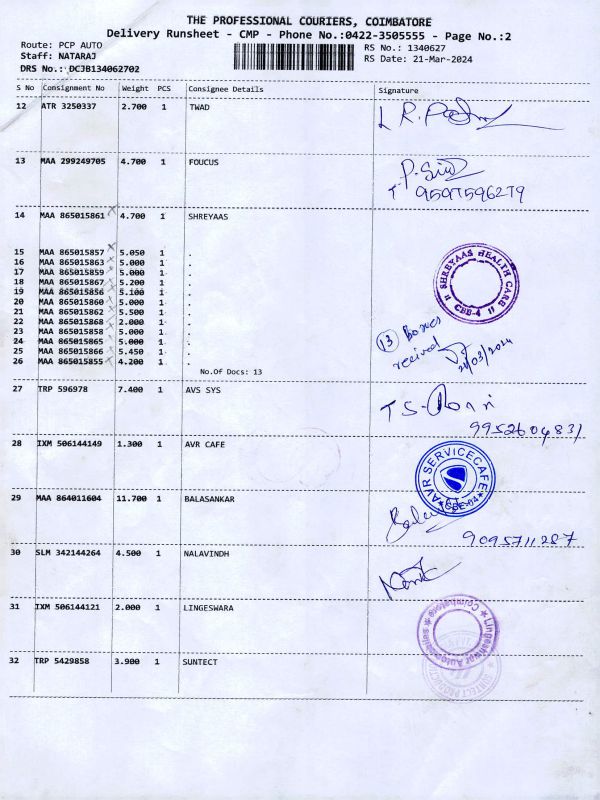 THE PROFESSIONAL COURIERS, COIMBATORE
Delivery Runsheet - CMP - Phone No.:0422-3505555 - Page No.:2
Route: PCP AUTO RS No.: 1340627
Staff: NATARAJ RS Date: 21-Mar-2024
DRS No.: DCJB134062702
S No Consignment No Weight PCS Consignee Details Signature
12 ATR 3250337 2.700 1 TWAD
13 MAA 299249705 4.700 1 FOUCUS
T 9597596279
14 MAA 865015861 4.700 1 SHREYAAS
15 MAA 865015857 5.050 1 .
16 MAA 865015863 5.000 1 .
17 MAA 865015859 5.000 1 .
18 MAA 865015867 5.200 1 .
19 MAA 865015856 5.100 1 .
20 MAA 865015860 5.000 1 .
21 MAA 865015862 5.500 1 .
22 MAA 865015868 2.000 1 .
23 MAA 865015858 5.000 1 .
24 MAA 865015865 5.000 1 .
25 MAA 865015866 5.450 1 .
26 MAA 865015855 4.200 1 .
No.Of Docs: 13
SHREYAAS HEALTH CARE
CBE-4
13 Boxes
recived
21/03/2024
27 TRP 596978 7.400 1 AVS SYS
9952604831
28 IXM 506144149 1.300 1 AVR CAFE
AVR SERVICECAFE
CBE-04
29 MAA 864011604 11.700 1 BALASANKAR
9095711287
30 SLM 342144264 4.500 1 NALAVINDH
31 IXM 506144121 2.000 1 LINGESWARA
Lingeshwar Automobiles
Coimbatore
32 TRP 5429858 3.900 1 SUNTECT